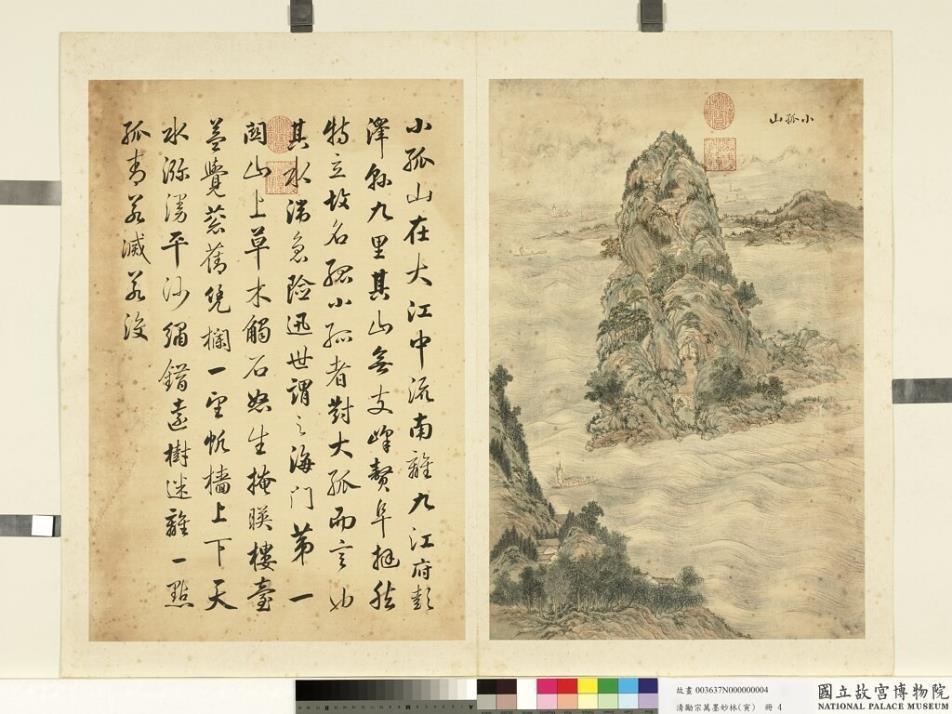 小孤山
小孤山在大江中流南離九江府彭
澤縣九里其山無支峰贅阜挺然
特立故名孤小孤者對大孤而言也
其水湍急險迅世謂之海門第一
関山上草木觸石怒生掩暎樓臺
益覺葱蒨凭欄一望帆檣上下天
水瀰漫平沙繡錯遠樹迷離一點
孤青若滅若沒
故畫 003637N000000004
清勵宗萬墨妙林(寅) 冊 4
國立故宮博物院
NATIONAL PALACE MUSEUM